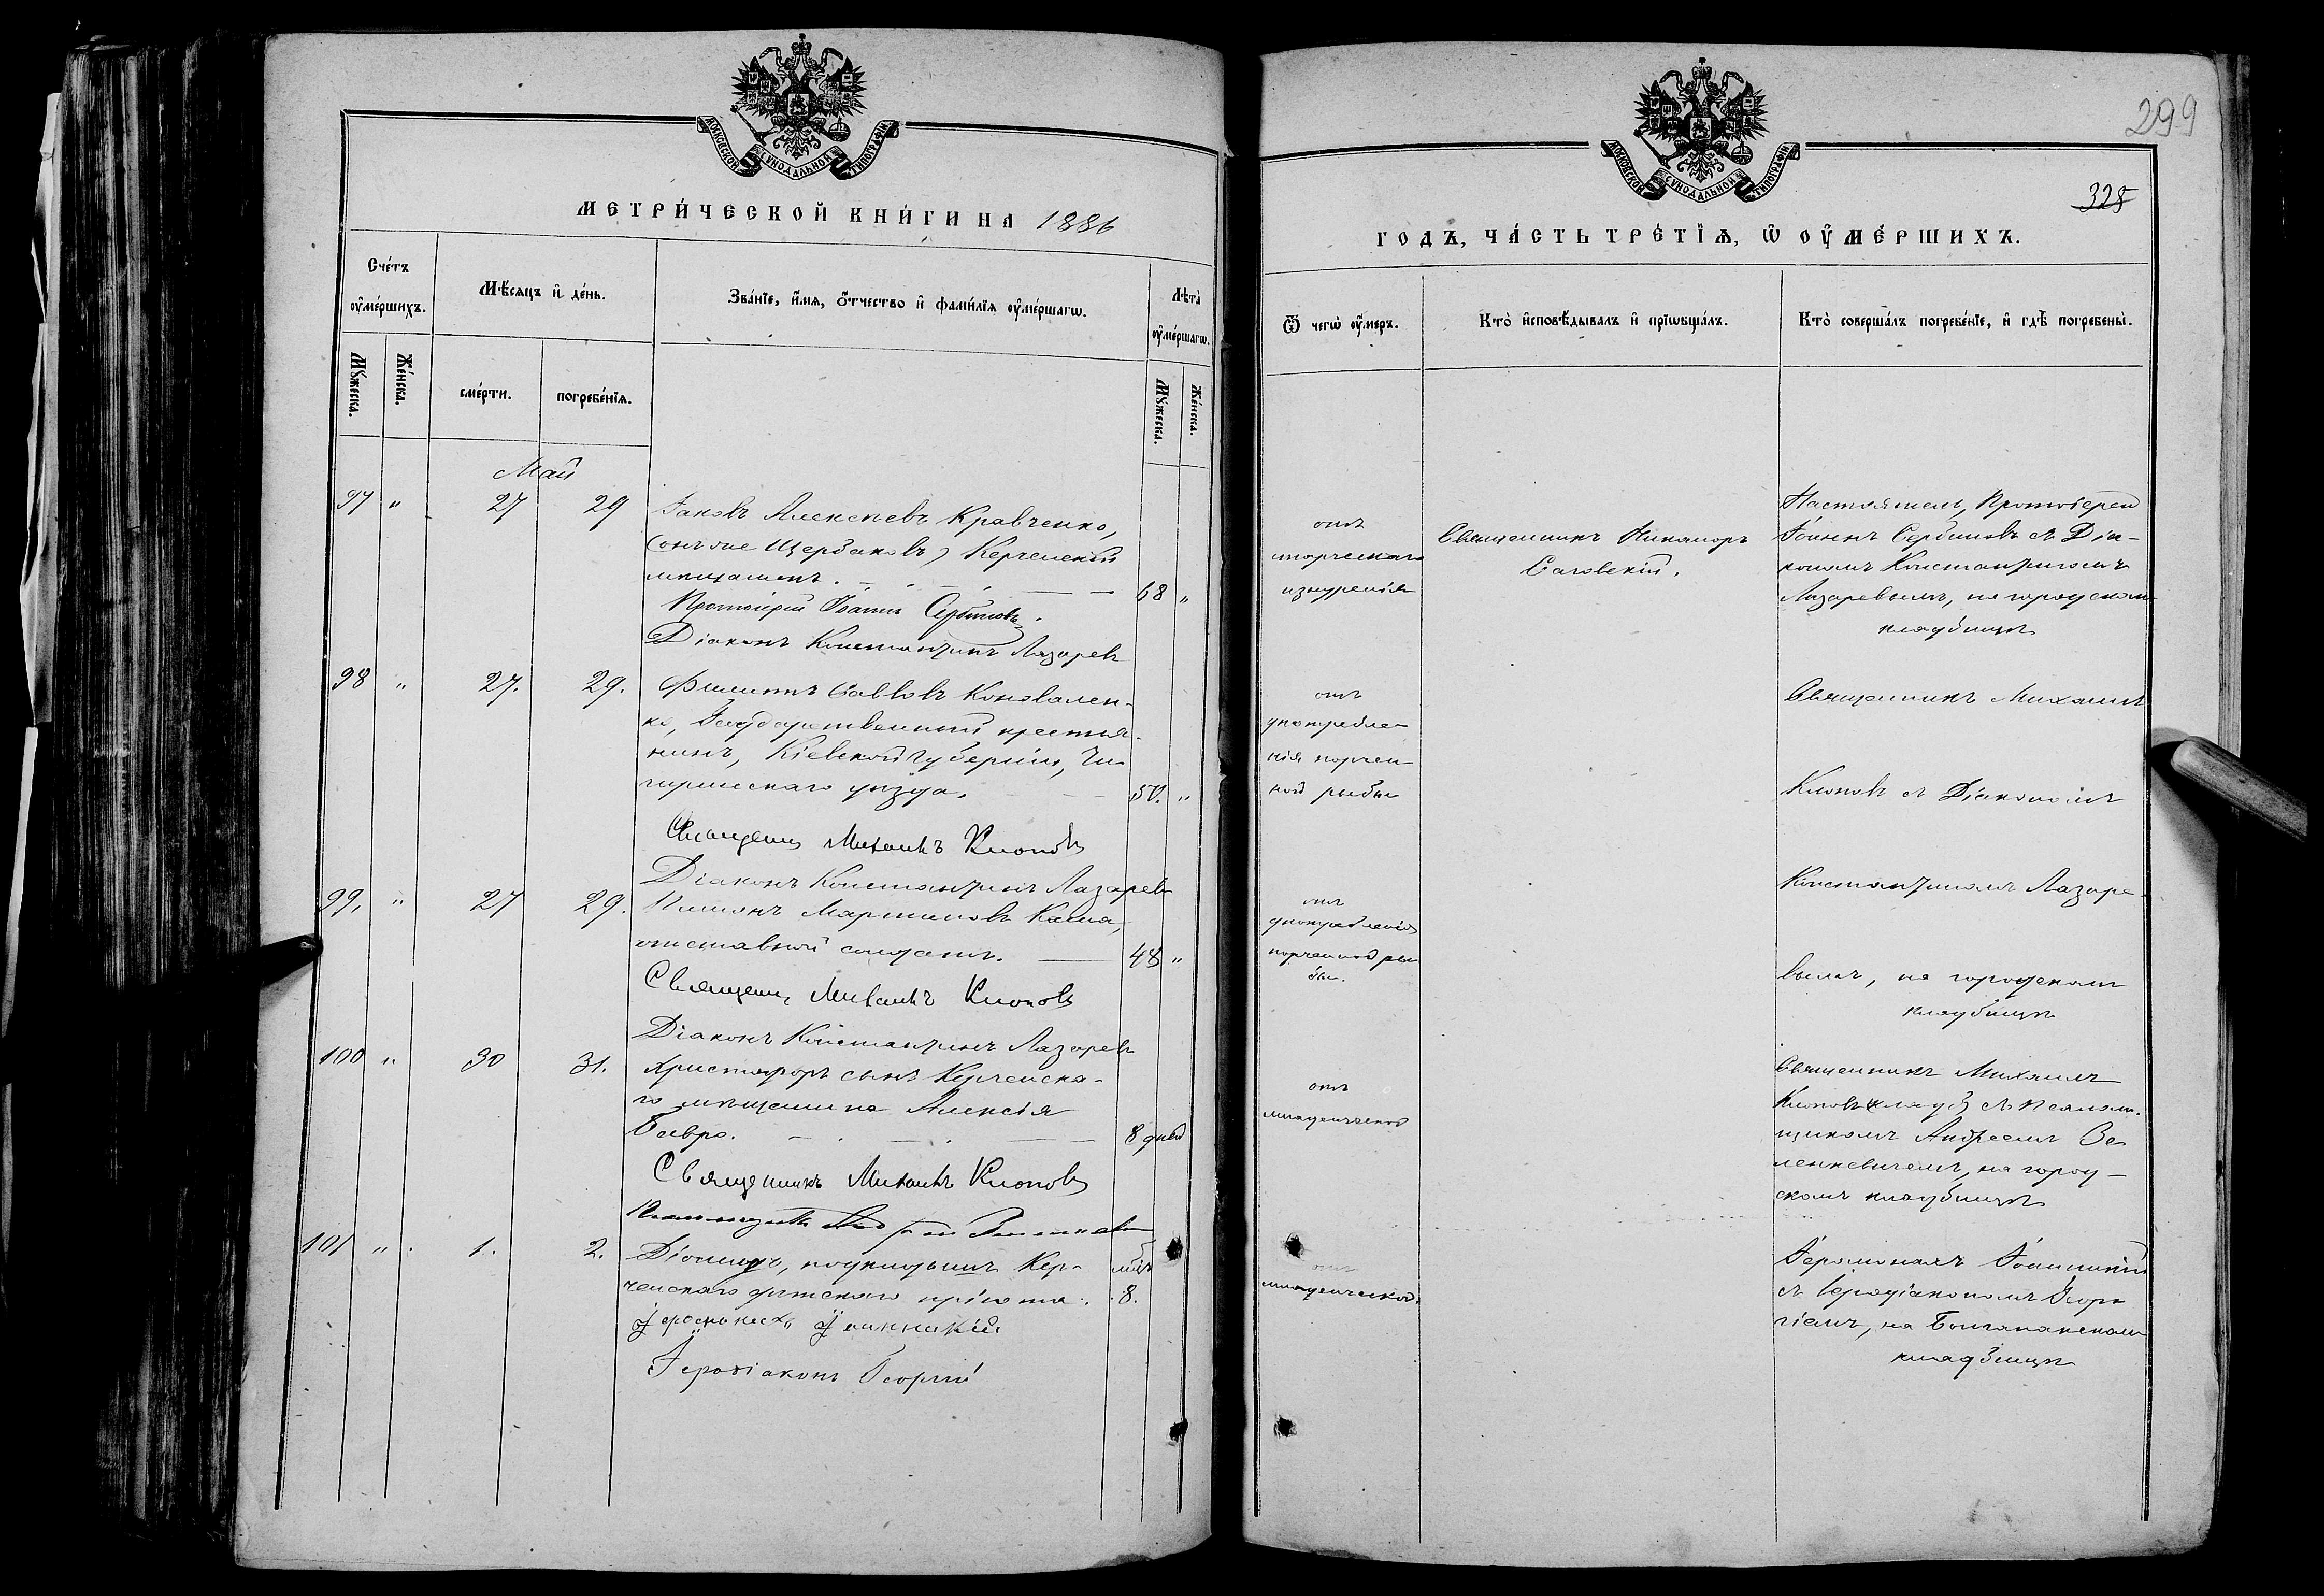 299
МОСКОВСКОЙ СУНОДАЛЬНОЙ ТИПОГРАФІИ
МЕТРИ́ЧЕСКОЙ КНИ́ГИ НА 1886
Сче́тъ оу҆ме́ршихъ.
Мѣ́сяцъ и҆ де́нь.
Зва́нїе, и҆́мя, ѻ҆́тчество и҆ фами́лїя оу҆ме́ршагѡ.
Лѣта̀ оу҆ме́ршагѡ.
Мꙋ́жеска.
Же́нска.
сме́рти.
погребе́нїя.
Мꙋ́жеска.
Же́нска.
Май
97 " 27 29 Іаковъ Алексѣевъ Кравченко,
(онъ же Щербаковъ) Керченскій
мѣщанинъ. 68 "
Протоіерей Іоаннъ Сербиновъ.
Діаконъ Константинъ Лазаревъ
98 " 27. 29. Филиппъ Савовъ Коновален-
ко, Государственный крестья-
нинъ, Кіевской губерніи, Чи-
гиринскаго уѣзда. 50. "
Священн Михаилъ Клоповъ
Діаконъ Константинъ Лазаревъ
99. " 27 29. Мартиновъ Каша,
отставной солдатъ. 48 "
Священн, Михаилъ Клоповъ
Діаконъ Константинъ Лазаревъ
100 " 30 31. Христофоръ сынъ Керченска-
го мѣщанина Алексія
8 дней
Священникъ Михаилъ Клоповъ
101 " 1. 2. Діомидъ, подкидышъ Кер- мѣс
ченскаго дѣтскаго пріюта. 8.
Іеромонахъ Іоанникій
Іеродіаконъ Георгій
МОСКОВСКОЙ СУНОДАЛЬНОЙ ТИПОГРАФІИ
328
ГОДЪ, ЧА́СТЬ ТРЕ́ТЇЯ, Ѡ҆ ОУ҆МЕ́РШИХЪ.
Ѿ чегѡ̀ оу҆́меръ.
Кто̀ и҆сповѣ́дывалъ и҆ прїѡбща́лъ.
Кто̀ соверша́лъ погребе́нїе, и҆ гдѣ̀ погребены̀.
отъ
старческаго
изнуренія
Священникъ Никаноръ
Саковскій.
Настоятель, Протоіерей
Іоаннъ Сербиновъ съ Діа-
кономъ Константиномъ
Лазаревымъ, на городскомъ
кладбищѣ
отъ
употребле-
нія порчен-
ной рыбы
Священникъ Михаилъ
Клоповъ съ Діакономъ
Константиномъ Лазаре-
вымъ, на городскомъ
кладбищѣ
отъ
употребленія
порченной ры
бы.
отъ
младенческой
Священникъ Михаилъ
Клоповъ съ псалом-
щикомъ Андреемъ Зе-
ленкевичемъ, на город-
скомъ кладбищѣ
отъ
младенческой.
Іеромонахъ Іоанникій
съ Іеродіакономъ Геор
гіемъ, на Булганакскомъ
кладбищѣ